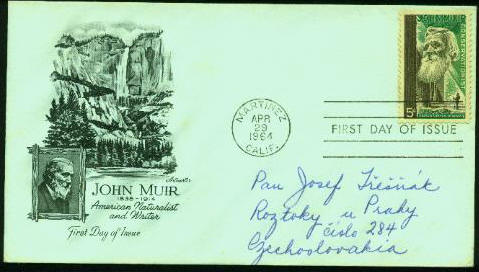 MARTINEZ
APR
29
1964
CALIF.
FIRST DAY OF ISSUE
5¢
JOHN MUIR
1838-1914
American Naturalist
and Writer
First Day of Issue
Pan Josef
Roztoky u Prahy
číslo 284
Czechoslovakia